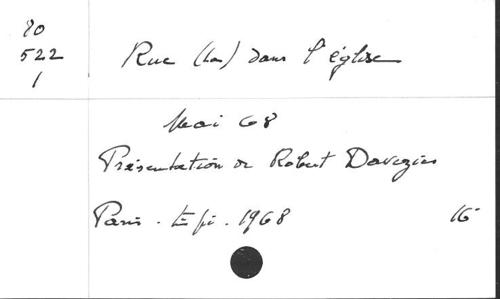 80
522
1
Rue (La) dans l'église
Mai 68
Présentation de Robert Davezies
Paris. Epi. 1968 16°